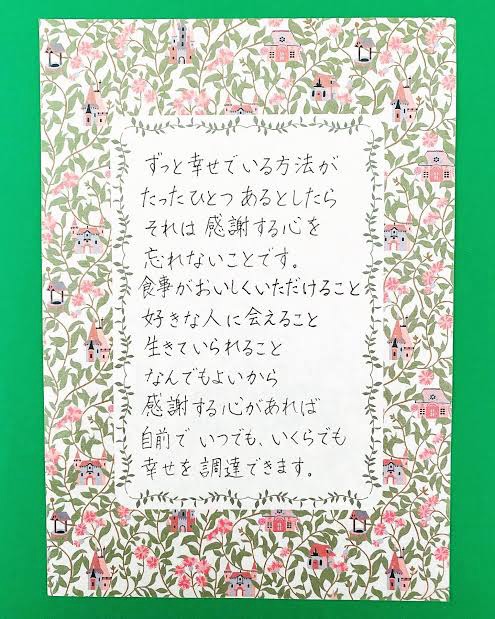 ずっと幸せでいる方法が
たったひとつ あるとしたら
それは 感謝する心を
忘れないことです。
食事がおいしくいただけること
好きな人に会えること
生きていられること
なんでもよいから
感謝する心があれば
自前で いつでも、いくらでも
幸せを調達できます。